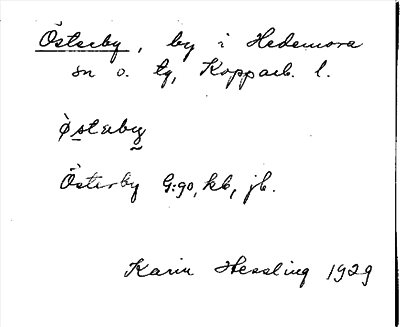 Österby, by i Hedemora
sn o. tg, Kopparb. l.
Österby G:90, kb, jb.
Karin Hessling 1929